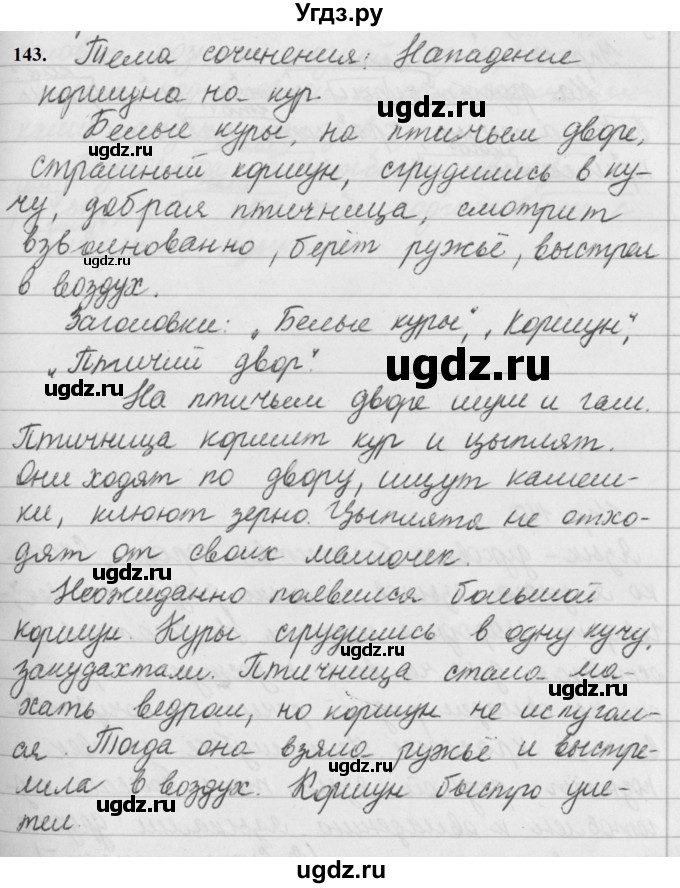 Угдз.ру
143. Тема сочинения: Нападение
коршуна на кур
ugdz.ru
Белые куры, на птичьем дворе,
ugdz.ru
страшный коршун, сгрудились в ку-
чу, добрая птичница, смотрит
взволнованно, берёт ружьё, выстрел
ugdz.ru
ugdz.ru
в воздух.
Заголовки: „Белые куры", „Коршун",
„Птичий двор".
ugdz.ru
ugdz.ru
На птичьем дворе шум и гам.
Птичница кормит кур и цыплят.
Они ходят по двору, ищут камеш-
ugdz.ru
ки, клюют зерно. Цыплята не отхо-
дят от своих мамочек.
ugdz.ru
Неожиданно появился большой
коршун. Куры сгрудились в одну кучу,
закудахтали. Птичница стала ма-
ugdz.ru
хать ведром, но коршун не испугал-
ся. Тогда она взяла ружьё и выстре-
лила в воздух. Коршун быстро уле-
ugdz.ru
тел.
ugdz.ru
Найдено на ugdz.ru